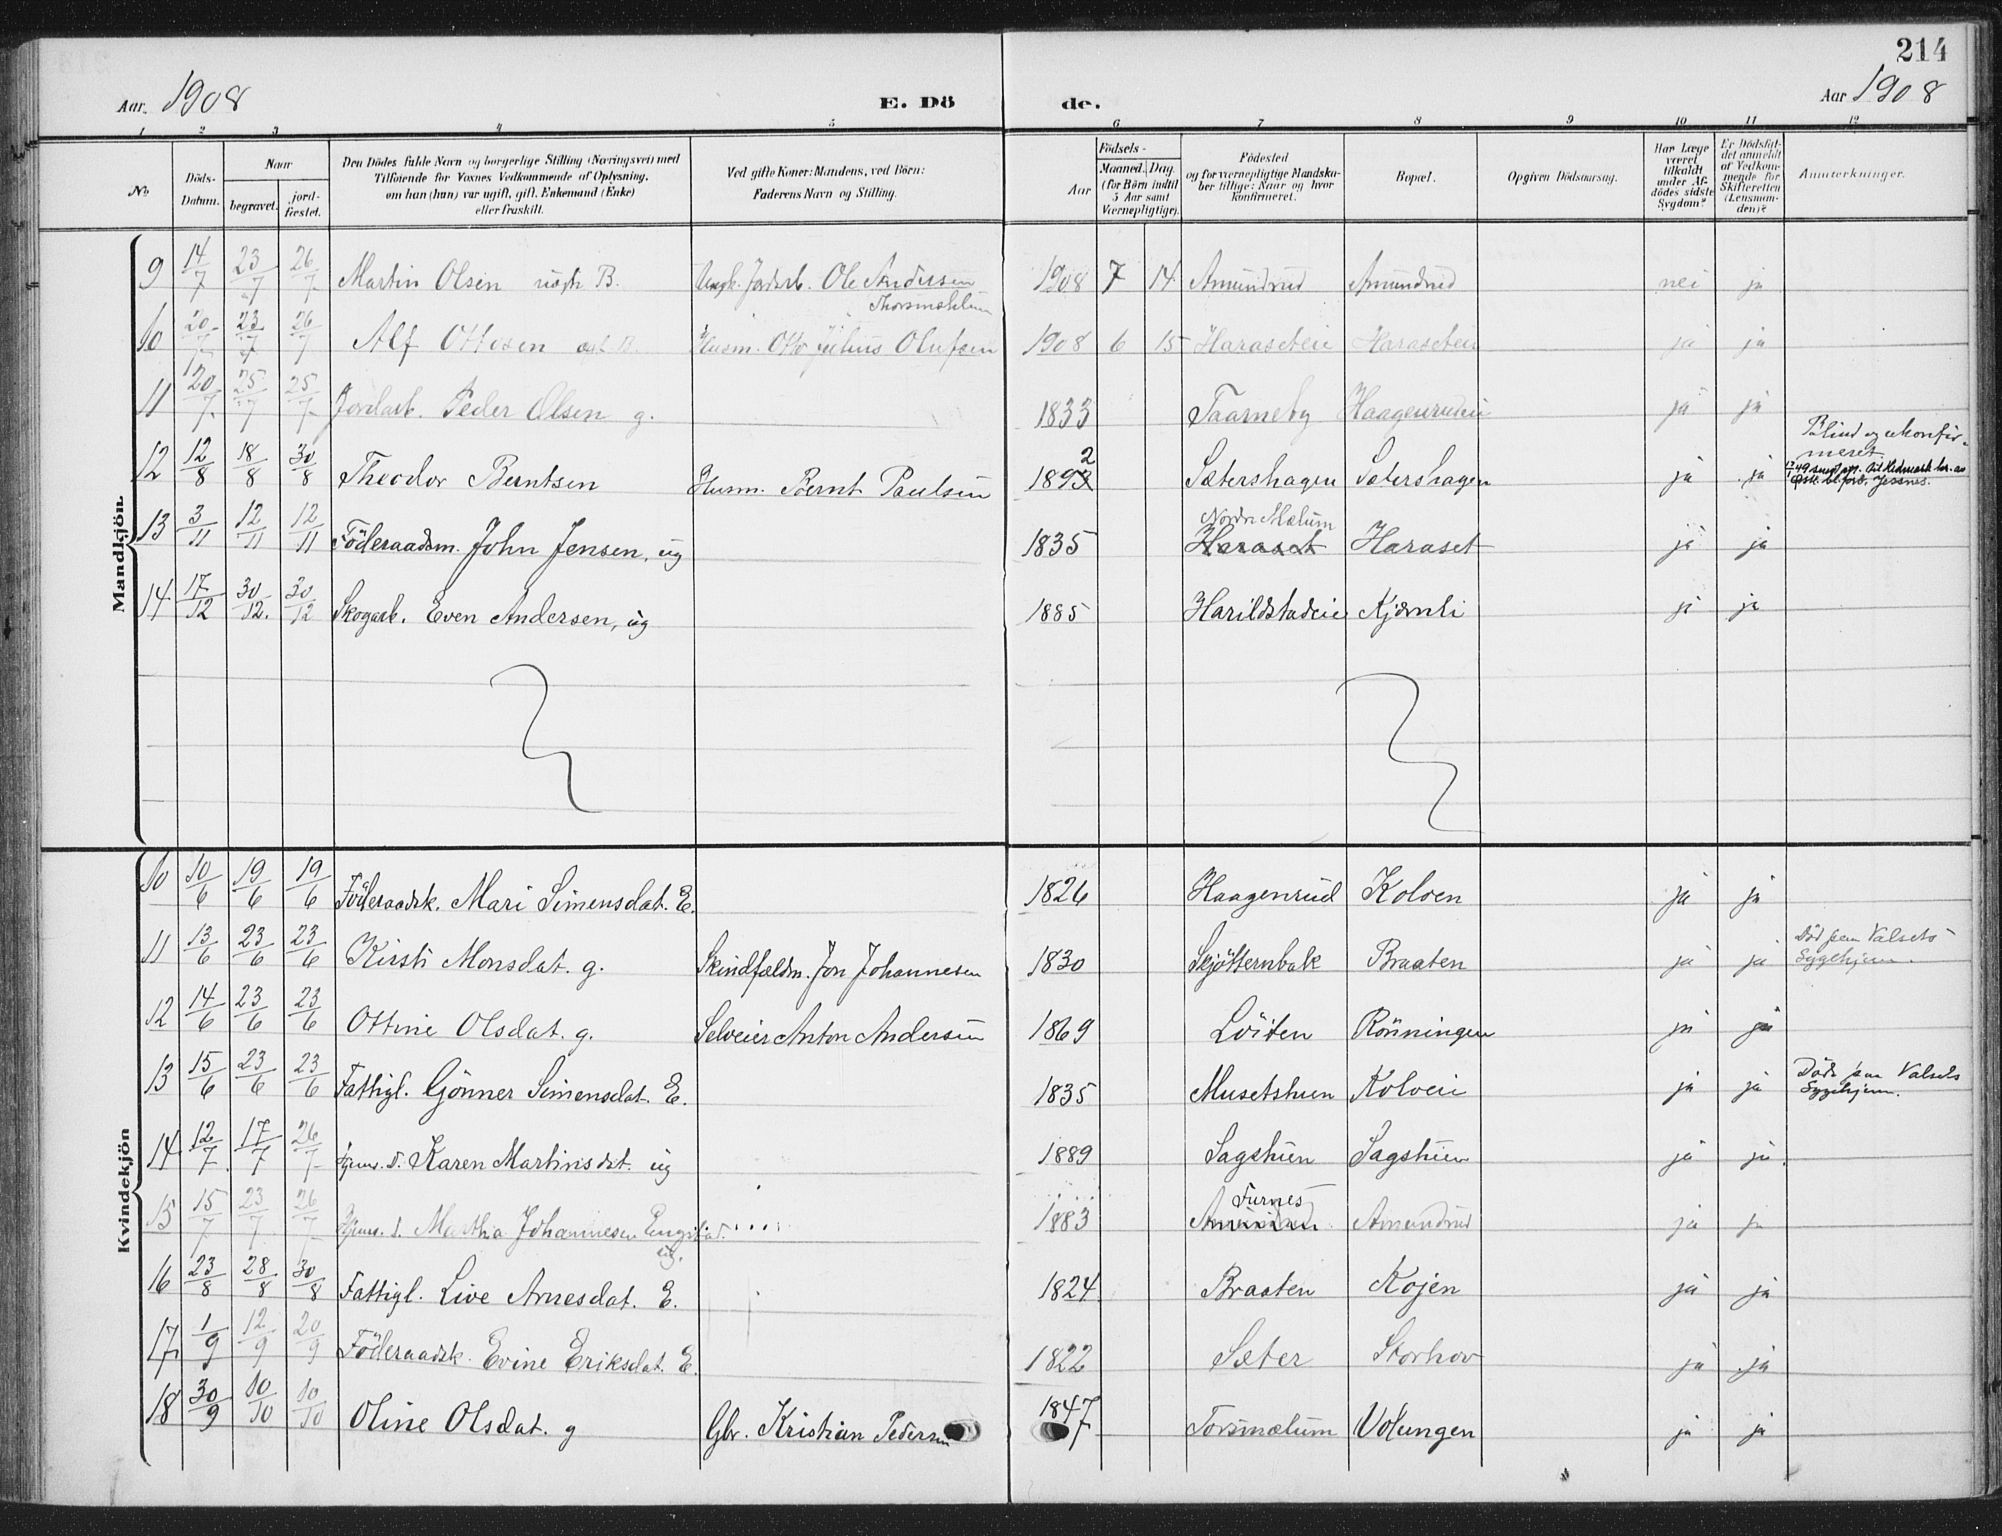 214
Aar. 1908 E. Dö de. Aar 1908
1 2 3 4 5 6 7 8 9 10 11 12
No. Döds-Datum. Naar begravet. jord-fæstet. Den Dödes fulde Navn og borgerlige Stilling (Næringsvei) med Tilföiende for Voxnes Vedkommende af Oplysning, om han (hun) var ugift, gift, Enkemand (Enke) eller fraskilt. Ved gifte Koner: Mandens, ved Börn: Faderens Navn og Stilling. Födsels- Aar Maaned. Dag. (for Börn indtil 5 Aar samt Værnepligtige). Födested og for værnepligtige Mandska-ber tillige: Naar og hvor konfirmeret. Bopæl. Opgiven Dödsaarsag. Har Læge været tilkaldt under Af-dödes sidste Sygdom? Er Dödsfal-det anmeldt af Vedkom-mende for Skifteretten (Lensman-den)? Anmærkninger.
Mandkjön.
9 14/7 23/7 26/7 Martin Olsen uægte B. Ungk. Jordarb. Ole Andersen Thorsmælum 1908 7 14 Amundrud Amundrud nei ja
10 20/7 23/7 26/7 Alf Ottesen ægt B. Husm. Otto Julius Olufsen 1908 6 15 Haraseteie Haraseteie ja ja
11 20/7 25/7 25/7 Jordarb. Peder Olsen g. 1833 Taarneby Haagenrudeie ja ja
12 12/8 18/8 30/8 Theodor Berntsen Husm. Bernt Paulsen 1892 Sætershagen Sætershagen ja ja Blind og ukonfir-meret
13 3/11 12/11 12/11 Föderaadsm. John Jensen, ug 1835 Nordre Mælum Haraset Haraset ja ja
14 17/12 30/12. 30/12 Skogarb. Even Andersen, ug 1885 Harildstadeie Kjærnli ja ja
Kvindekjön
10 10/6 19/6 19/6 Föderaadsk. Mari Simensdat. E. 1826 Haagenrud Koloen ja ja
11 13/6 23/6 23/6 Kirsti Monsdat. g. Skindfældm. Jon Johannesen 1830 Skjötternbak Braaten ja ja Död paa Valsets Sygehjem.
12 14/6 23/6 23/6 Ottine Olsdat. g. Selveier Anton Andersen 1869 Löiten Rönningen ja ja
13 15/6 23/6 23/6 Fattigl. Gönner Simensdat. E. 1835 Musetshuen Koloeie ja ja Död paa Valsets Sygehjem.
14 12/7 17/7 26/7 Hjemv. d. Karen Martinsdat. ug 1889 Sagstuen Sagstuen ja ja
15 15/7 23/7 26/7 Hjemv. d. Martha Johannesen Engstad ug. 1883 Furnes Amundrud Amundrud ja ja
16 23/8 28/8 30/8 Fattigl. Live Arnesdat. E. 1824 Braaten Kojen ja ja
17 1/9 12/9 20/9 Föderaadsk. Evine Eriksdat. E. 1822 Sæter Storhov ja ja
18 30/9 10/10 10/10 Oline Olsdat. g Gbr. Kristian Pedersen 1847 Torsmælum Volungen ja ja